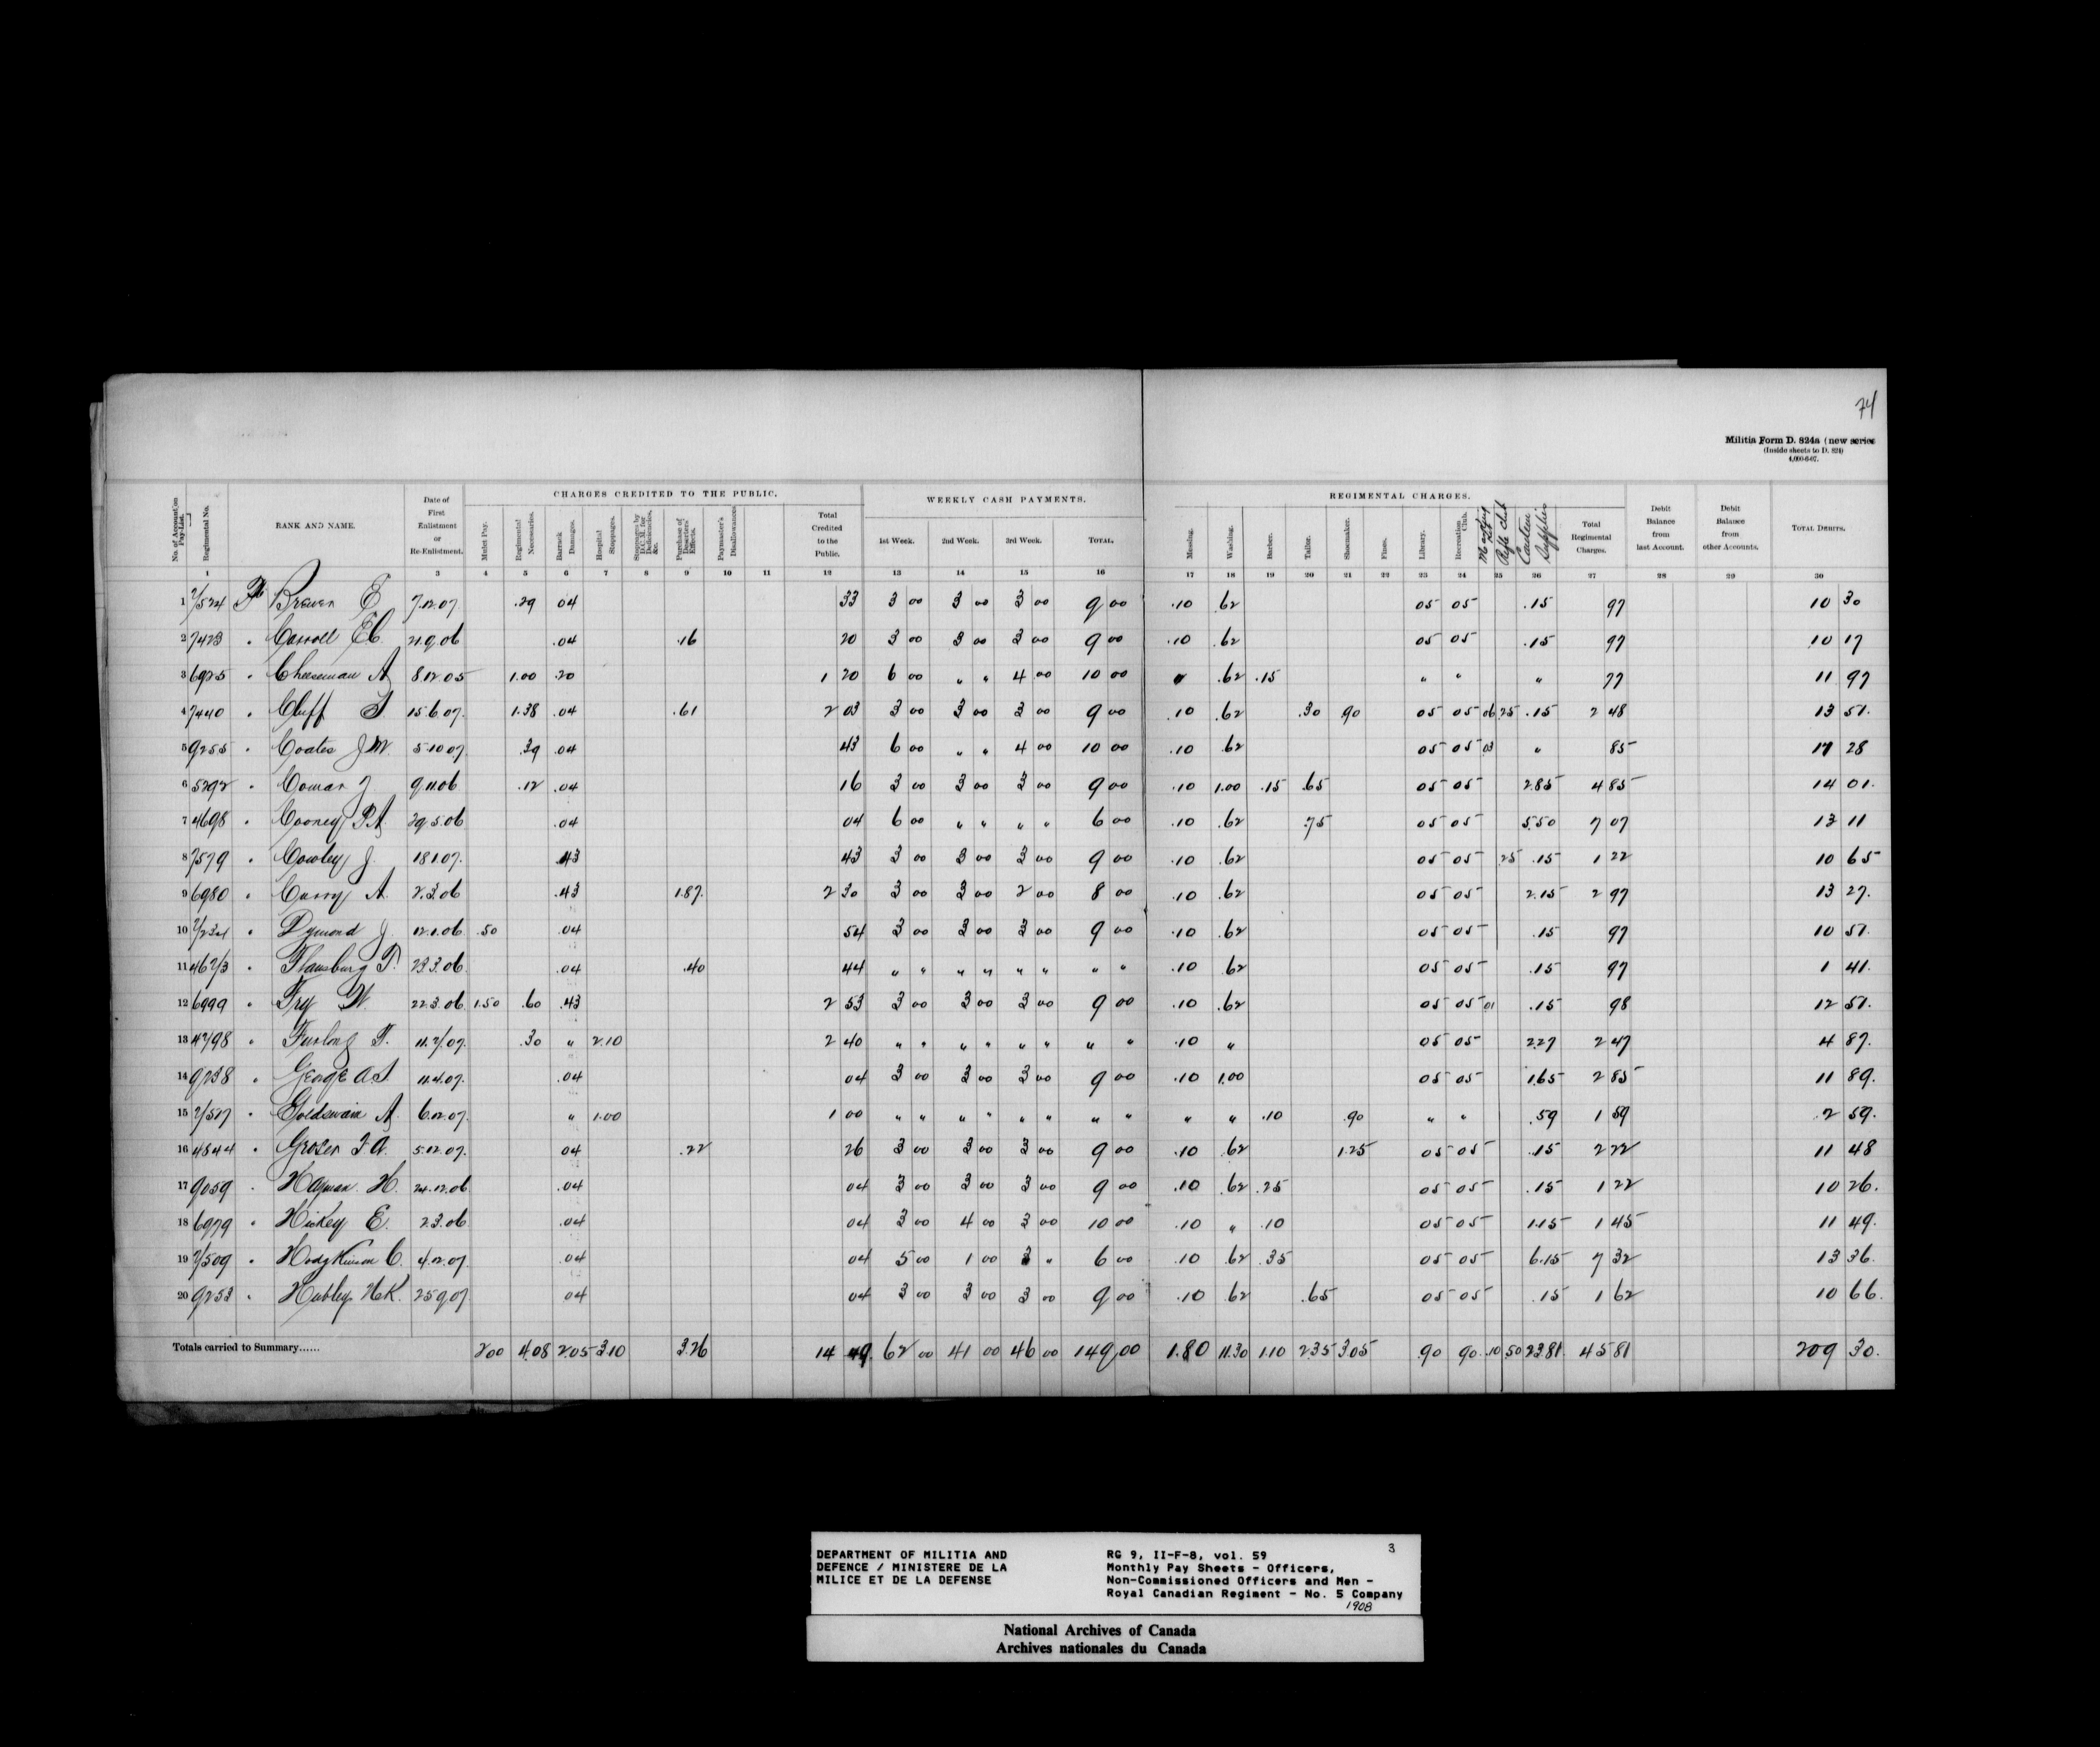 74
Militia Form D. 824a (new series
(Inside sheets to D. 824)
4,000-6-07.
CHARGES CREDITED TO THE PUBLIC. WEEKLY CASH PAYMENTS. REGIMENTAL CHARGES.
No. of Account on Pay-List. Regimental No. RANK AND NAME. Date of First Enlistment or Re-Enlistment. Mulct Pay. Regimental Necessaries. Barrack Damages. Hospital Stoppages. Stoppages by D.C.M. for Deficiencies, &c. Purchase of Deserters' Effects. Paymaster's Disallowances Total Credited to the Public. 1st Week. 2nd Week. 3rd Week. TOTAL. Messing. Washing. Barber. Tailor. Shoemaker. Fines. Library. Recreation Club. Marking Rifle Club Canteen Supplies Total Regimental Charges. Debit Balance from last Account. Debit Balance from other Accounts. TOTAL DEBITS.
1 3 4 5 6 7 8 9 10 11 12 13 14 15 16 17 18 19 20 21 22 23 24 25 26 27 28 29 30
1 7524 Pte Brewer E 7.12.07 .29 04 33 3 00 3 00 3 00 9 00 .10 .62 05 05 .15 97 10 30
2 7423 " Carroll EC 21.9.06 .04 .16 20 3 00 3 00 3 00 9 00 .10 .62 05 05 .15 97 10 17
3 6925 " Cheeseman A 8.12.05 1.00 .20 1 20 6 00 " " 4 00 10 00 " .62 .15 " " " 77 11 97
4 7440 " Cluff S 15.6.07. 1.38 .04 .61 2 03 3 00 3 00 3 00 9 00 .10 .62 .30 .90 05 05 06 25 .15 2 48 13 51.
5 9255 " Coates J.W. 5.10.07 .39 .04 43 6 00 " " 4 00 10 00 .10 .62 05 05 03 " 85 11 28
6 5292 " Coman J 9.11.06 .12 .04 16 3 00 3 00 3 00 9 00 .10 1.00 .15 .65 05 05 2.85 4 85 14 01.
7 4698 " Cooney P.A. 29.5.06 .04 04 6 00 " " " " 6 00 .10 .62 .75 05 05 5.50 7 07 13 11
8 7579 " Cowley J. 18.1.07. .43 43 3 00 3 00 3 00 9 00 .10 .62 05 05 25 .15 1 22 10 65
9 6980 " Curry A. 2.3.06 .43 1.87. 2 30 3 00 3 00 2 00 8 00 .10 .62 05 05 2.15 2 97 13 27.
10 7234 " Dymond J. 12.1.06. .50 .04 54 3 00 3 00 3 00 9 00 .10 .62 05 05 .15 97 10 51.
11 4673 " Flansburg T. 23.3.06. .04 .40 44 " " " " " " " " .10 .62 05 05 .15 97 1 41.
12 6999 " Fry W. 22.3.06. 1.50 .60 .43 2 53 3 00 3 00 3 00 9 00 .10 .62 05 05 01 .15 98 12 51.
13 4798 " Furlong T. 11.7.07. .30 " 2.10 2 40 " " " " " " " " .10 " 05 05 2.27 2 47 4 87.
14 9238 " George A.S. 11.4.07. .04 04 3 00 3 00 3 00 9 00 .10 1.00 05 05 1.65 2 85 11 89.
15 7527 " Goldswain A. 6.12.07. " 1.00 1 00 " " " " " " " " " " .10 .90 " " .59 1 59 2 59.
16 4844 " Groser F.A. 5.12.07. 04 .22 26 3 00 3 00 3 00 9 00 .10 .62 1.25 05 05 .15 2 22 11 48
17 9059 " Hayman. H. 24.12.06 .04 04 3 00 3 00 3 00 9 00 .10 .62 .25 05 05 .15 1 22 10 26.
18 6979 " Hickey E. 2.3.06 .04 04 3 00 4 00 3 00 10 00 .10 " .10 05 05 1.15 1 45 11 49.
19 7509 " Hodgkinson C. 4.12.07. .04 04 5 00 1 00 " 6 00 .10 .62 .35 05 05 6.15 7 32 13 36.
20 9253 " Hubley H.K. 25.9.07 04 04 3 00 3 00 3 00 9 00 .10 .62 .65 05 05 .15 1 62 10 66.
Totals carried to Summary...... 2.00 4.08 2.05 3.10 3.26 14 49. 62 00 41 00 46 00 149 00 1.80 11.30 1.10 2.35 3.05 .90 .90 .10 .50 23.81 45 81 209 30.
DEPARTMENT OF MILITIA AND
DEFENCE / MINISTERE DE LA
MILICE ET DE LA DEFENSE
RG 9, II-F-8, vol. 59 3
Monthly Pay Sheets - Officers,
Non-Commissioned Officers and Men -
Royal Canadian Regiment - No. 5 Company
1908
National Archives of Canada
Archives nationales du Canada